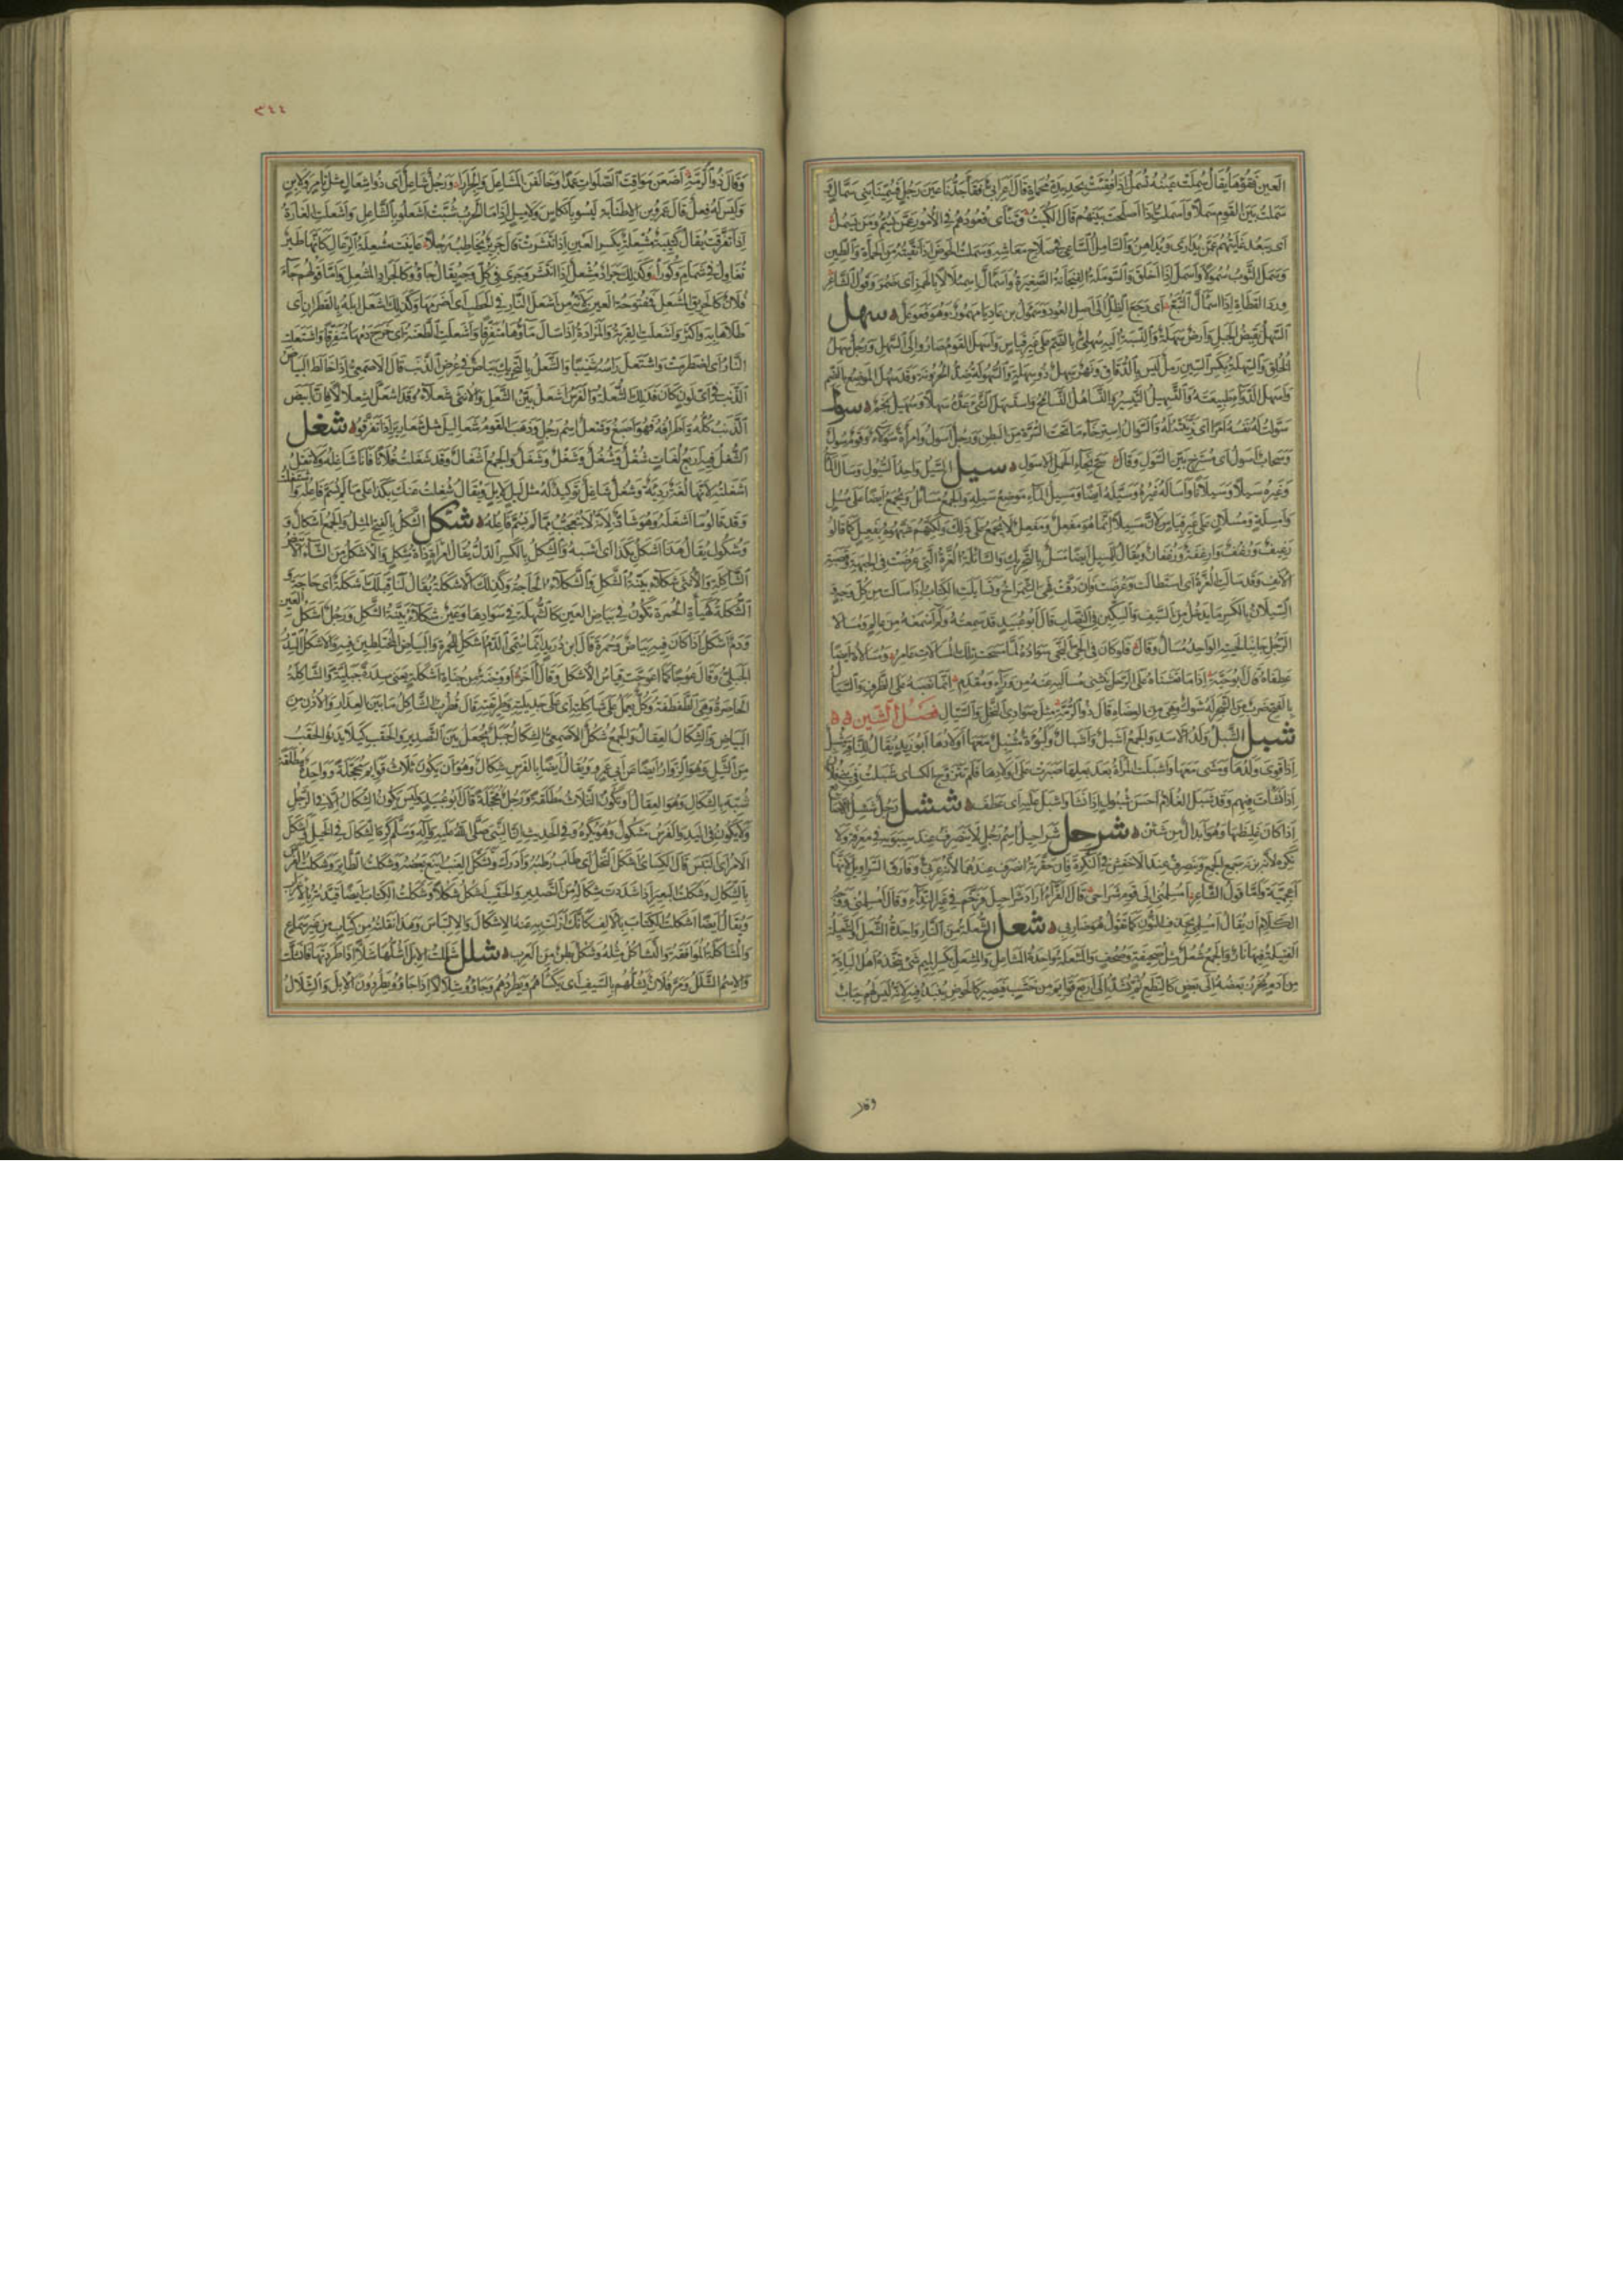 العين فقؤها يقال سملت عينه تسمل اذا فقئت بحديدة محماة قال اعرابى فقأ جدنا عين رجل فسمينا بنى سمال و
سملت بين القوم سملا واسملت اذا اصلحت بينهم قال الكميت وتنأى قعودهم فى الامور عمن يسم ومن يسمل
اى تبعد غايتهم عمن يدارى ويداهن والسامل الساعى فى صلاح معاشه وسملت الحوض اذا نقيته من الحمأة والطين
وسمل الثوب سمولا واسمل اذا اخلق والسوملة الفنجانة الصغيرة واسمأل اسمئلالا بالهمز اى ضمر وقول الشاعر
ورد القطاة اذا اسمأل التبع اى رجع الظل الى اصل العود وسموأل بن عاديا مهموز وهو فعوعل سهل
السهل نقيض الجبل وارض سهلة والنسبة اليه سهلى بالضم على غير قياس واسهل القوم صاروا الى السهل ورجل سهل
الخلق والسهلة بكسر السين رمل ليس بالدقاق ونهر سهل ذو سهلة والسهولة ضد الحزونة وقد سهل الموضع بالضم
واسهل الدواء طبيعته والتسهيل التيسير والتساهل التسامح واستسهل الشئ عده سهلا وسهيل نجم سول
سولت له نفسه امرا اى زينته له والسول استرخاء ما تحت السرة من البطن ورجل اسول وامرأة سولاء وقوم سول
وسحاب اسول اى مسترخ بين السول وقال سح نجاء الحمل الاسول سيل السيل واحد السيول وسال الماء
وغيره سيلا وسيلانا واساله غيره وسيله ايضا ومسيل الماء موضع سيله والجمع مسائل ويجمع ايضا على مسل
وامسلة ومسلان على غير قياس لان مسيلا انما هو مفعل ومفعل لا يجمع على ذلك ولكنهم شبهوه بفعيل كما قالوا
رغيف ورغف وارغفة ورغفان ويقال للمسيل ايضا مسل بالتحريك والسائلة الغرة التى عرضت فى الجبهة وقصبة
الانف وقد سالت الغرة اى استطالت وعرضت فان دقت فهى الشمراخ وتسايلت الكتائب اذا سالت من كل وجه
السيلان بالكسر ما يدخل من السيف والسكين فى النصاب قال ابو عبيد قد سمعته ولم اسمعه من عالم ومسالا
الرجل جانبا لحيته الواحد مسال وقال فلو كان فى الحى النجى سواده لما مسحت تلك المسالات عامر ومسالاه ايضا
عطفاه قال ابو حية اذا ما نعشناه على الرحل ينثنى مساليه عنه من وراء ومقدم انما نصبه على الظرف والسيال
بالفتح ضرب من الشجر له شوك وهى من العضاه قال ذو الرمة مثل صوادى النخل والسيال فصل الشين
شبل الشبل ولد الاسد والجمع اشبل واشبال ولبؤة مشبل معها اولادها ابو زيد يقال للناقة مشبل
اذا قوى ولدها ومشى معها واشبلت المرأة بعد بعلها صبرت على اولادها فلم تتزوج الكسائى شبلت فى بنى فلان
اذا نشأت فيهم وقد شبل الغلام احسن شبول اذا نشأ واشبل عليه اى عطف ششل رجل ششل الاصابع
اذا كان غليظها وهو ابدال من شثن شرحل شراحيل اسم رجل لا ينصرف عند سيبويه فى معرفة ولا
نكرة لانه بزنة جمع الجمع وينصرف عند الاخفش فى النكرة فان حقرته انصرف عندهما لانه عربى وفارق السراويل لانها
اعجمية واما قول الشاعر امسلمنى الى قوم شراحى قال الفراء اراد شراحيل فرخم فى غير النداء وقال امسلمنى ووجه
الكلام ان يقال امسلمى بحذف النون كما تقول هو ضاربى شعل الشعلة من النار واحدة الشعل والشعيلة
الفتيلة فيها نار والجمع شعل مثل صحيفة وصحف والمشعلة واحدة المشاعل والمشعل بكسر الميم شئ يتخذه اهل البادية
من ادم يخرز بعضه الى بعض كالنطع ثم يشد الى اربع قوائم من خشب فيصير كالحوض ينبذ فيه لانه ليس لهم حباب
وقال
٣٤٤
وقال ذو الرمة اضعن مواقت الصلوات عمدا وحالفن المشاعل والجرارا ورجل شاعل اى ذو اشعال مثل تامر ولابن
وليس له فعل قال عمرو بن الاطنابة ليسوا بانكاس ولا ميل اذا ما الحرب شبت اشعلوا بالشاعل واشعلت الغارة
اذا تفرقت يقال كتيبة مشعلة بكسر العين اذا انتشرت قال جرير يخاطب رجلا عاينت مشعلة الرعال كانها طير
تغاول فى شمام وكورا وكذلك جراد مشعل اذا انتشر وجرى فى كل وجه يقال جاؤا كالجراد المشعل واما قولهم جاء
فلان كالحريق المشعل فمفتوحة العين لانه من اشعل النار فى الحطب اى اضرمها وكذلك اشعل ابله بالقطران اى
طلاها به واكثر واشعلت القربة والمزادة اذا سال ماؤها متفرقا واشعلت الطعنة اى خرج دمها متفرقا واشتعلت
النار اى اضطرمت واشتعل رأسه شيبا والشعل بالتحريك بياض فى عرض الذنب قال الاصمعى اذا خالط البياض
الذنب فى اى لون كان فذلك الشعلة والفرس اشعل بين الشعل والانثى شعلاء وقد اشعل اشعلالا فان ابيض
الذنب كله واطرافه فهو اصبغ وشعل اسم رجل وذهب القوم شعاليل مثل شعارير اذا تفرقوا شغل
الشغل فيه اربع لغات شغل وشغل وشغل وشغل والجمع اشغال وقد شغلت فلانا فانا شاغله ولا تقل
اشغلته لانها لغة رديئة وشغل شاغل توكيد له مثل ليل لايل ويقال شغلت عنك بكذا على ما لم يسم فاعله واشتغلت
وقد قالوا ما اشغله وهو شاذ لانه لا يتعجب مما لم يسم فاعله شكل الشكل بالفتح المثل والجمع اشكال و
وشكول يقال هذا اشكل بكذا اى اشبه والشكل بالكسر الدل يقال امرأة ذات شكل والاشكل من الشاء الابيض
الشاكلة والانثى شكلاء بينة الشكل والشكلاء الحاجة وكذلك الاشكلة يقال لنا قبلك اشكلة اى حاجة و
الشكلة كهيأة الحمرة تكون فى بياض العين كالشهلة فى سوادها وعين شكلاء بينة الشكل ورجل اشكل العين
ودم اشكل اذا كان فيه بياض وحمرة قال ابن دريد انما سمى الدم اشكل للحمرة والبياض المختلطين فيه والاشكل السدر
الجبلى وقال عوجا كما اعوجت قياس الاشكل وقال آخر او وجبة من جناة اشكلة يعنى سدرة جبلية والشاكلة
الخاصرة وهى الطفطفة وكل يعمل على شاكلته اى على جديلته وطريقته قال قطرب الشاكل ما بين العذار والاذن من
البياض والشكال العقال والجمع شكل الاصمعى الشكال حبل يجعل بين التصدير والحقب كيلا يدنو الحقب
من الثيل وهو الزوار ايضا عن ابى عمرو ويقال ايضا بالفرس شكال وهو ان يكون ثلاث قوائم محجلة وواحدة مطلقة
شبه بالشكال وهو العقال او يكون الثلاث مطلقة ورجل محجلة قال ابو عبيد وليس يكون الشكال الا فى الرجل
ولا يكون فى اليد والفرس مشكول وهو يكره وفى الحديث ان النبى صلى الله عليه وآله وسلم كره الشكال فى الخيل اشكل
الامر اى التبس قال الكسائى اشكل النخل اى طاب رطبه وادرك وتشكل العنب اينع بعضه وشكلت الطائر وشكلت الفرس
بالشكال وشكلت البعير اذا شددت شكاله بين التصدير والحقب اشكل شكلا وشكلت الكتاب ايضا قيدته بالاعراب
ويقال ايضا اشكلت الكتاب بالالف كانك ازلت به عنه الاشكال والالتباس وهذا نقلته من كتاب من غير سماع
والمشاكلة الموافقة والتشاكل مثله وشكل بطن من العرب شلل شللت الابل اشلها شلا اذا طردتها فانشلت
والاسم الشلل ومر فلان يشلهم بالسيف اى يكسأهم ويطردهم وجاؤا شلالا اذا جاؤا يطردون الابل والشلال